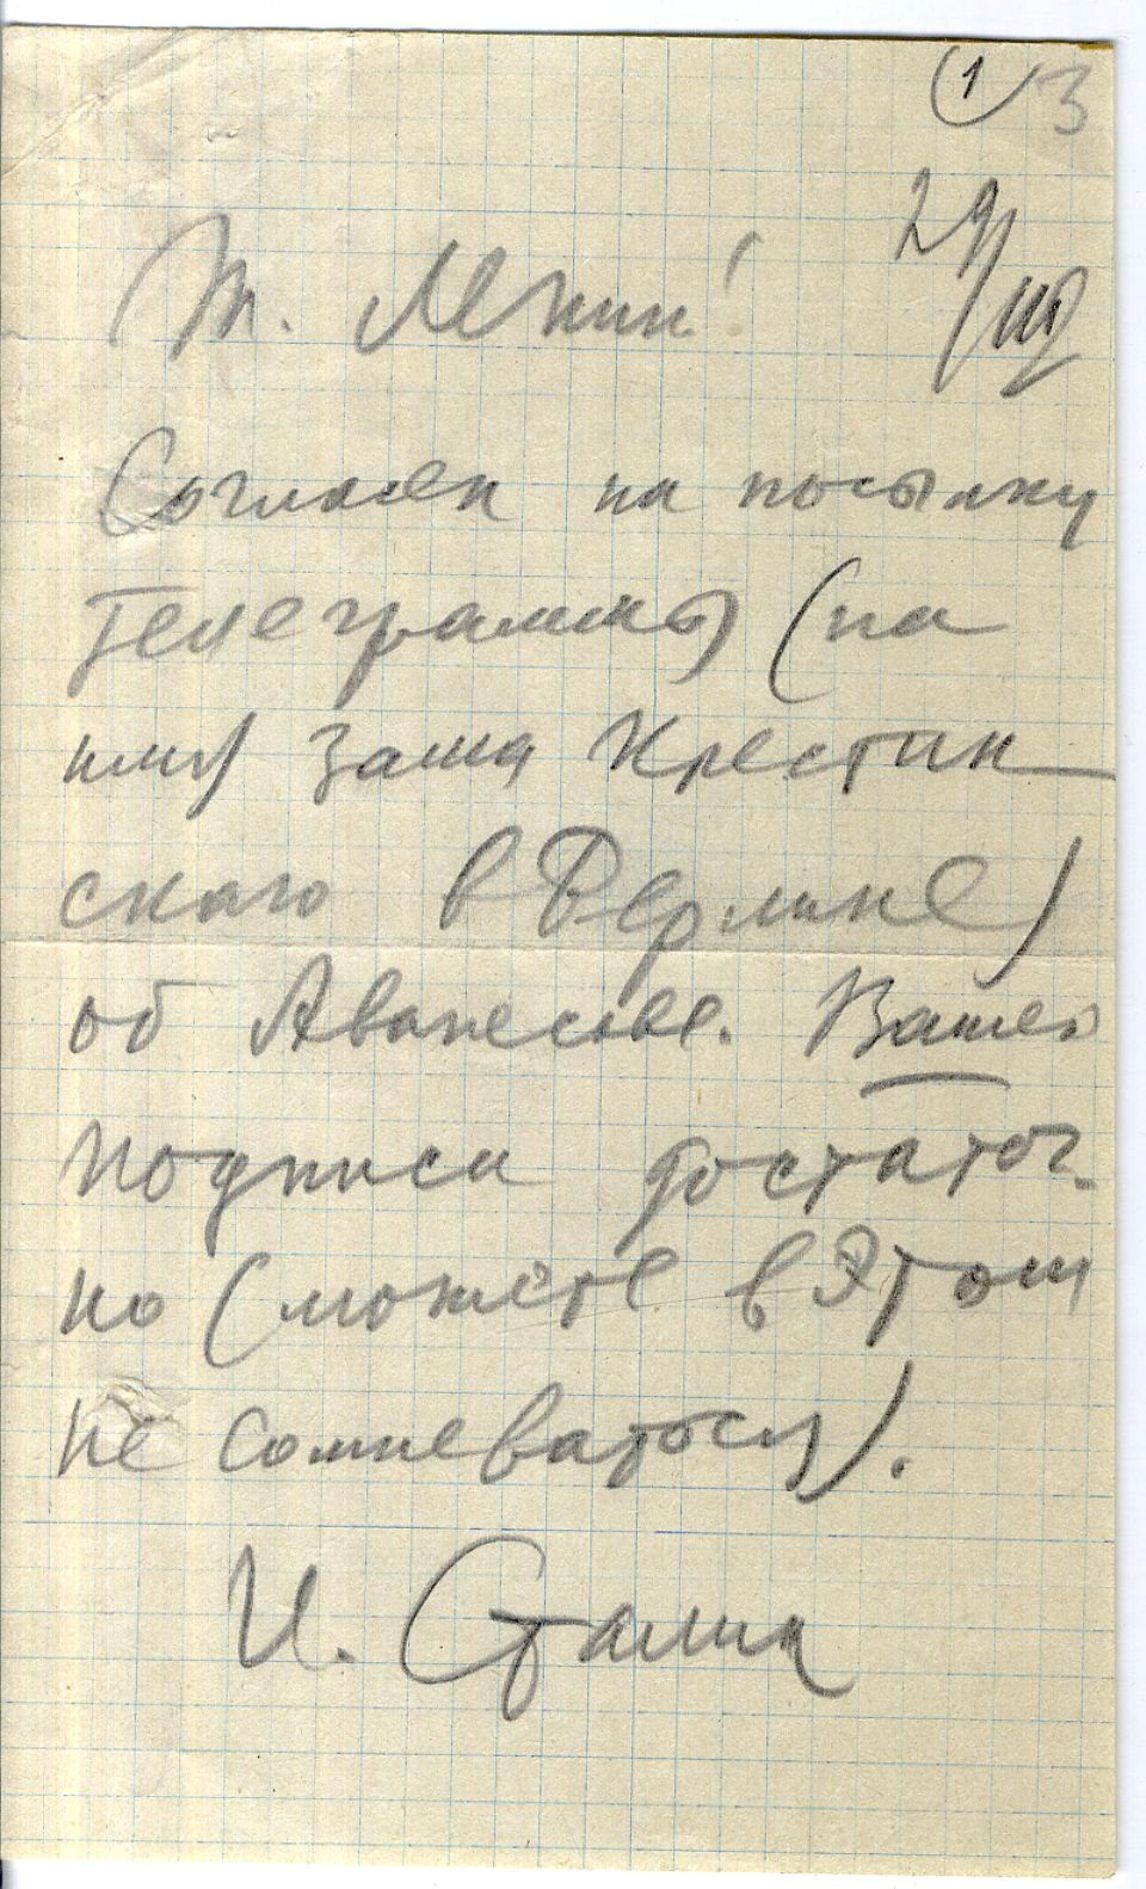 1 3
29/VIII
Т. Ленин!
Согласен на посылку
телеграммы (на
имя зама Крестин
ского в Берлине)
об Аванесове. Вашей
подписи достаточ-
но (можете в этом
не сомневаться).
И. Сталин